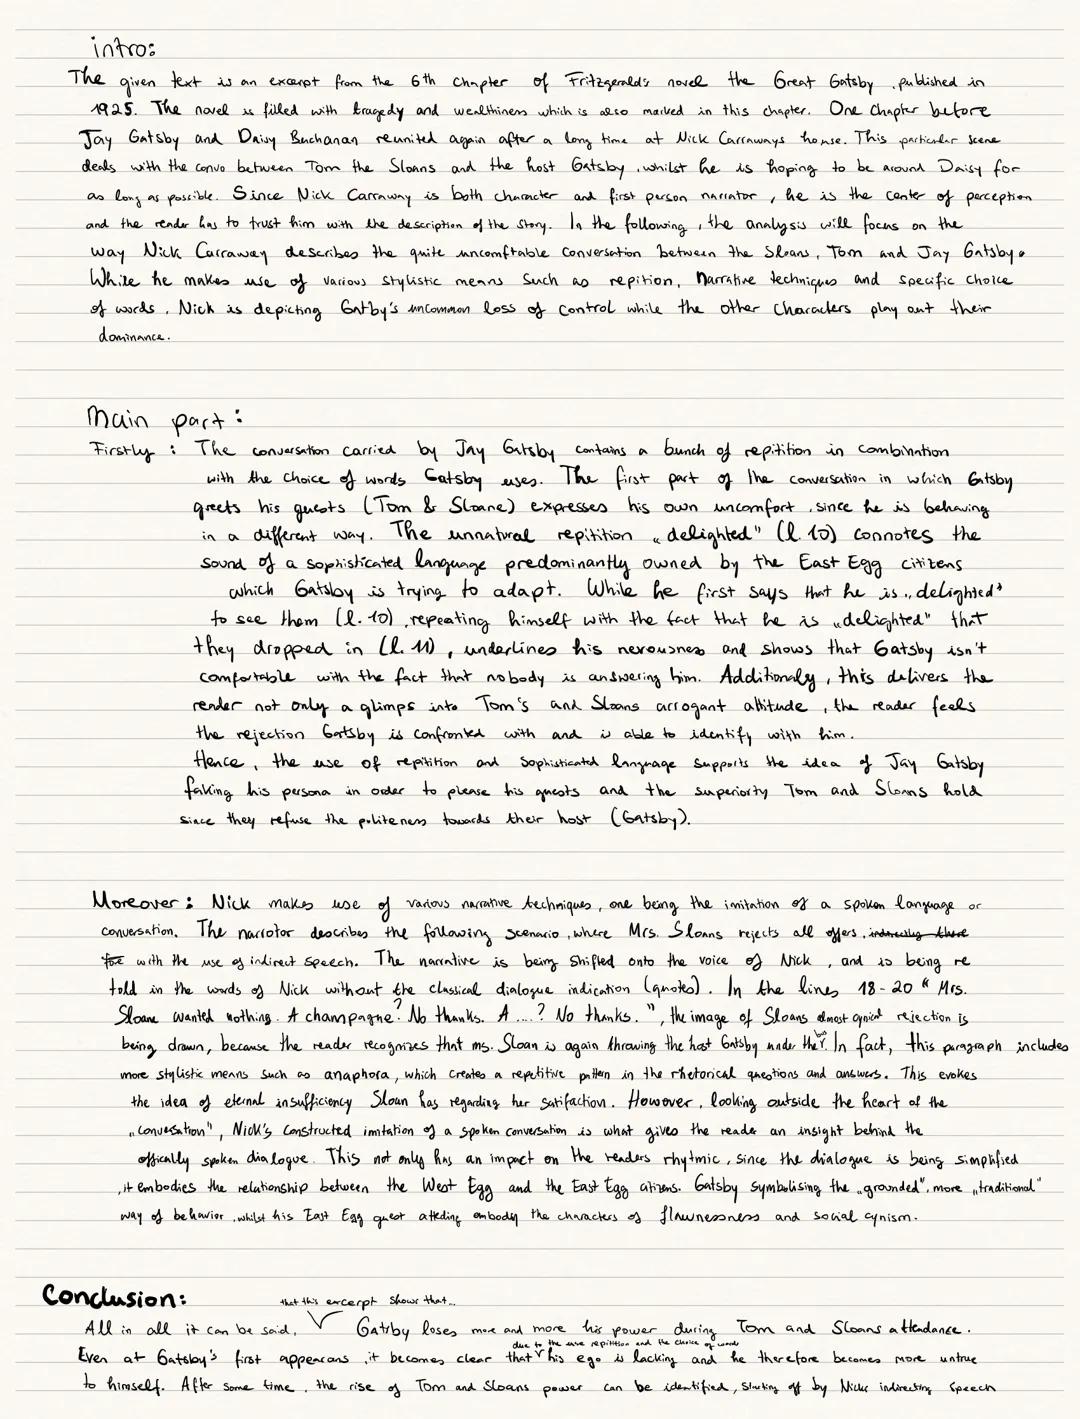 intro:
The given text is an excerpt from the 6th Chapter of Fritzgerald's novel the Great Gatsby, published in
1925. The novel is filled with tragedy and wealthiness which is also marked in this chapter. One Chapter before
Jay Gatsby and Daisy Buchanan reunited again after a long time at Nick Carraways house. This particular scene
deals with the convo between Tom the Sloans and the host Gatsby, whilst he is hoping to be around Daisy for
as long as possible. Since Nick Carraway is both character and first person narrator, he is the center of perception
and the reader has to trust him with the description of the story. In the following, the analysis will focus on the
way Nick Carraway describes the quite uncomftable conversation between the Sloans, Tom and Jay Gatsby.
While he makes use of various stylistic means such as repition, Narrative techniques and specific choice
of words, Nick is depicting Gatby's uncommon loss of control while the other Characters play out their
dominance.
Main part:
Firstly: The conversation carried by Jay Gatsby contains a bunch of repitition in combination
with the choice of words Gatsby uses. The first part of the conversation in which Gatsby
greets his guests (Tom & Sloane) expresses his own uncomfort, since he is behaving
in a different way. The unnatural repitition „delighted" (l. 10) connotes the
sound of a sophisticated language predominantly owned by the East Egg citizens
which Gatsby is trying to adapt. While he first says that he is „delighted"
to see them (l. 10), repeating himself with the fact that he is „delighted" that
they dropped in (l. 11), underlines his nervousness and shows that Gatsby isn't
comfortable with the fact that nobody is answering him. Additionaly, this delivers the
reader not only a glimps into Tom's and Sloans arrogant attitude, the reader feels
the rejection Gatsby is confronted with and is able to identify with him.
Hence, the use of repitition and Sophisticated language supports the idea of Jay Gatsby
faking his persona in order to please his guests and the superiorty Tom and Sloans hold
since they refuse the politeness towards their host (Gatsby).
Moreover: Nick makes use of various narrative techniques, one being the imitation of a spoken language or
conversation. The narrator describes the following scenario, where Mrs. Sloans rejects all offers, indirectly there
for with the use of indirect speech. The narrative is being shifted onto the voice of Nick, and is being re
told in the words of Nick without the classical dialogue indication (quotes). In the lines 18-20 " Mrs.
Sloane wanted nothing. A champagne? No thanks. A ....? No thanks.", the image of Sloans almost cynical rejection is
being drawn, because the reader recognizes that ms. Sloan is again throwing the host Gatsby under the bus. In fact, this paragraph includes
more stylistic means such as anaphora, which creates a repetitive pattern in the rhetorical questions and answers. This evokes
the idea of eternal insufficiency Sloan has regarding her satifaction. However, looking outside the heart of the
„conversation", Nick's constructed imitation of a spoken conversation is what gives the reader an insight behind the
offically spoken dialogue. This not only has an impact on the readers rhytmic, since the dialogue is being simplified
, it embodies the relationship between the West Egg and the East Egg citizens. Gatsby symbolising the „grounded", more „traditional"
way of behavior, whilst his East Egg guest embody the characters of flawnessness and social cynism.
Conclusion:
that this excerpt shows that...
All in all it can be said, Gatsby loses more and more his power during Tom and Sloans attendance.
due to the use repitition and the choice of words
Even at Gatsby's first appearans, it becomes clear that his ego is lacking and he therefore becomes more untrue
to himself. After some time, the rise of Tom and Sloans power can be identified, starting off by Nicks indirecting speech